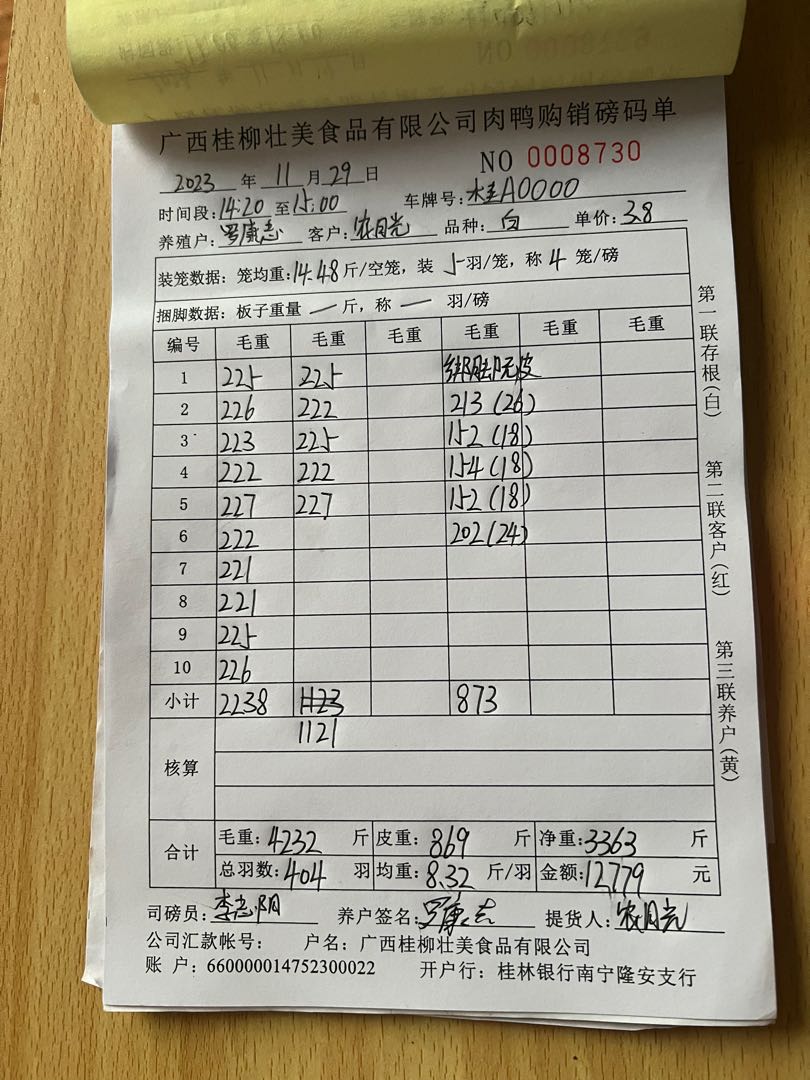 广西桂柳壮美食品有限公司肉鸭购销磅码单
NO 0008730
2023 年 11 月 29 日
时间段:14:20 至 15:00 车牌号:桂A0000
养殖户:罗康志 客户:农月光 品种:白 单价:3.8
装笼数据:笼均重:14.48 斤/空笼,装 5 羽/笼,称 4 笼/磅
捆脚数据:板子重量 — 斤,称 — 羽/磅
编号 毛重 毛重 毛重 毛重 毛重 毛重
1 225 225 绑脚除皮
2 226 222 213 (26)
3 223 225 152 (18)
4 222 222 154 (18)
5 227 227 152 (18)
6 222 202 (24)
7 221
8 221
9 225
10 226
小计 2238 1123 873
1121
核算
合计 毛重:4232 斤 皮重:869 斤 净重:3363 斤
总羽数:404 羽 均重:8.32 斤/羽 金额:12779 元
司磅员:李志阴 养户签名:罗康志 提货人:农月光
公司汇款帐号: 户名:广西桂柳壮美食品有限公司
账 户:660000014752300022 开户行:桂林银行南宁隆安支行
第一联存根(白)
第二联客户(红)
第三联养户(黄)